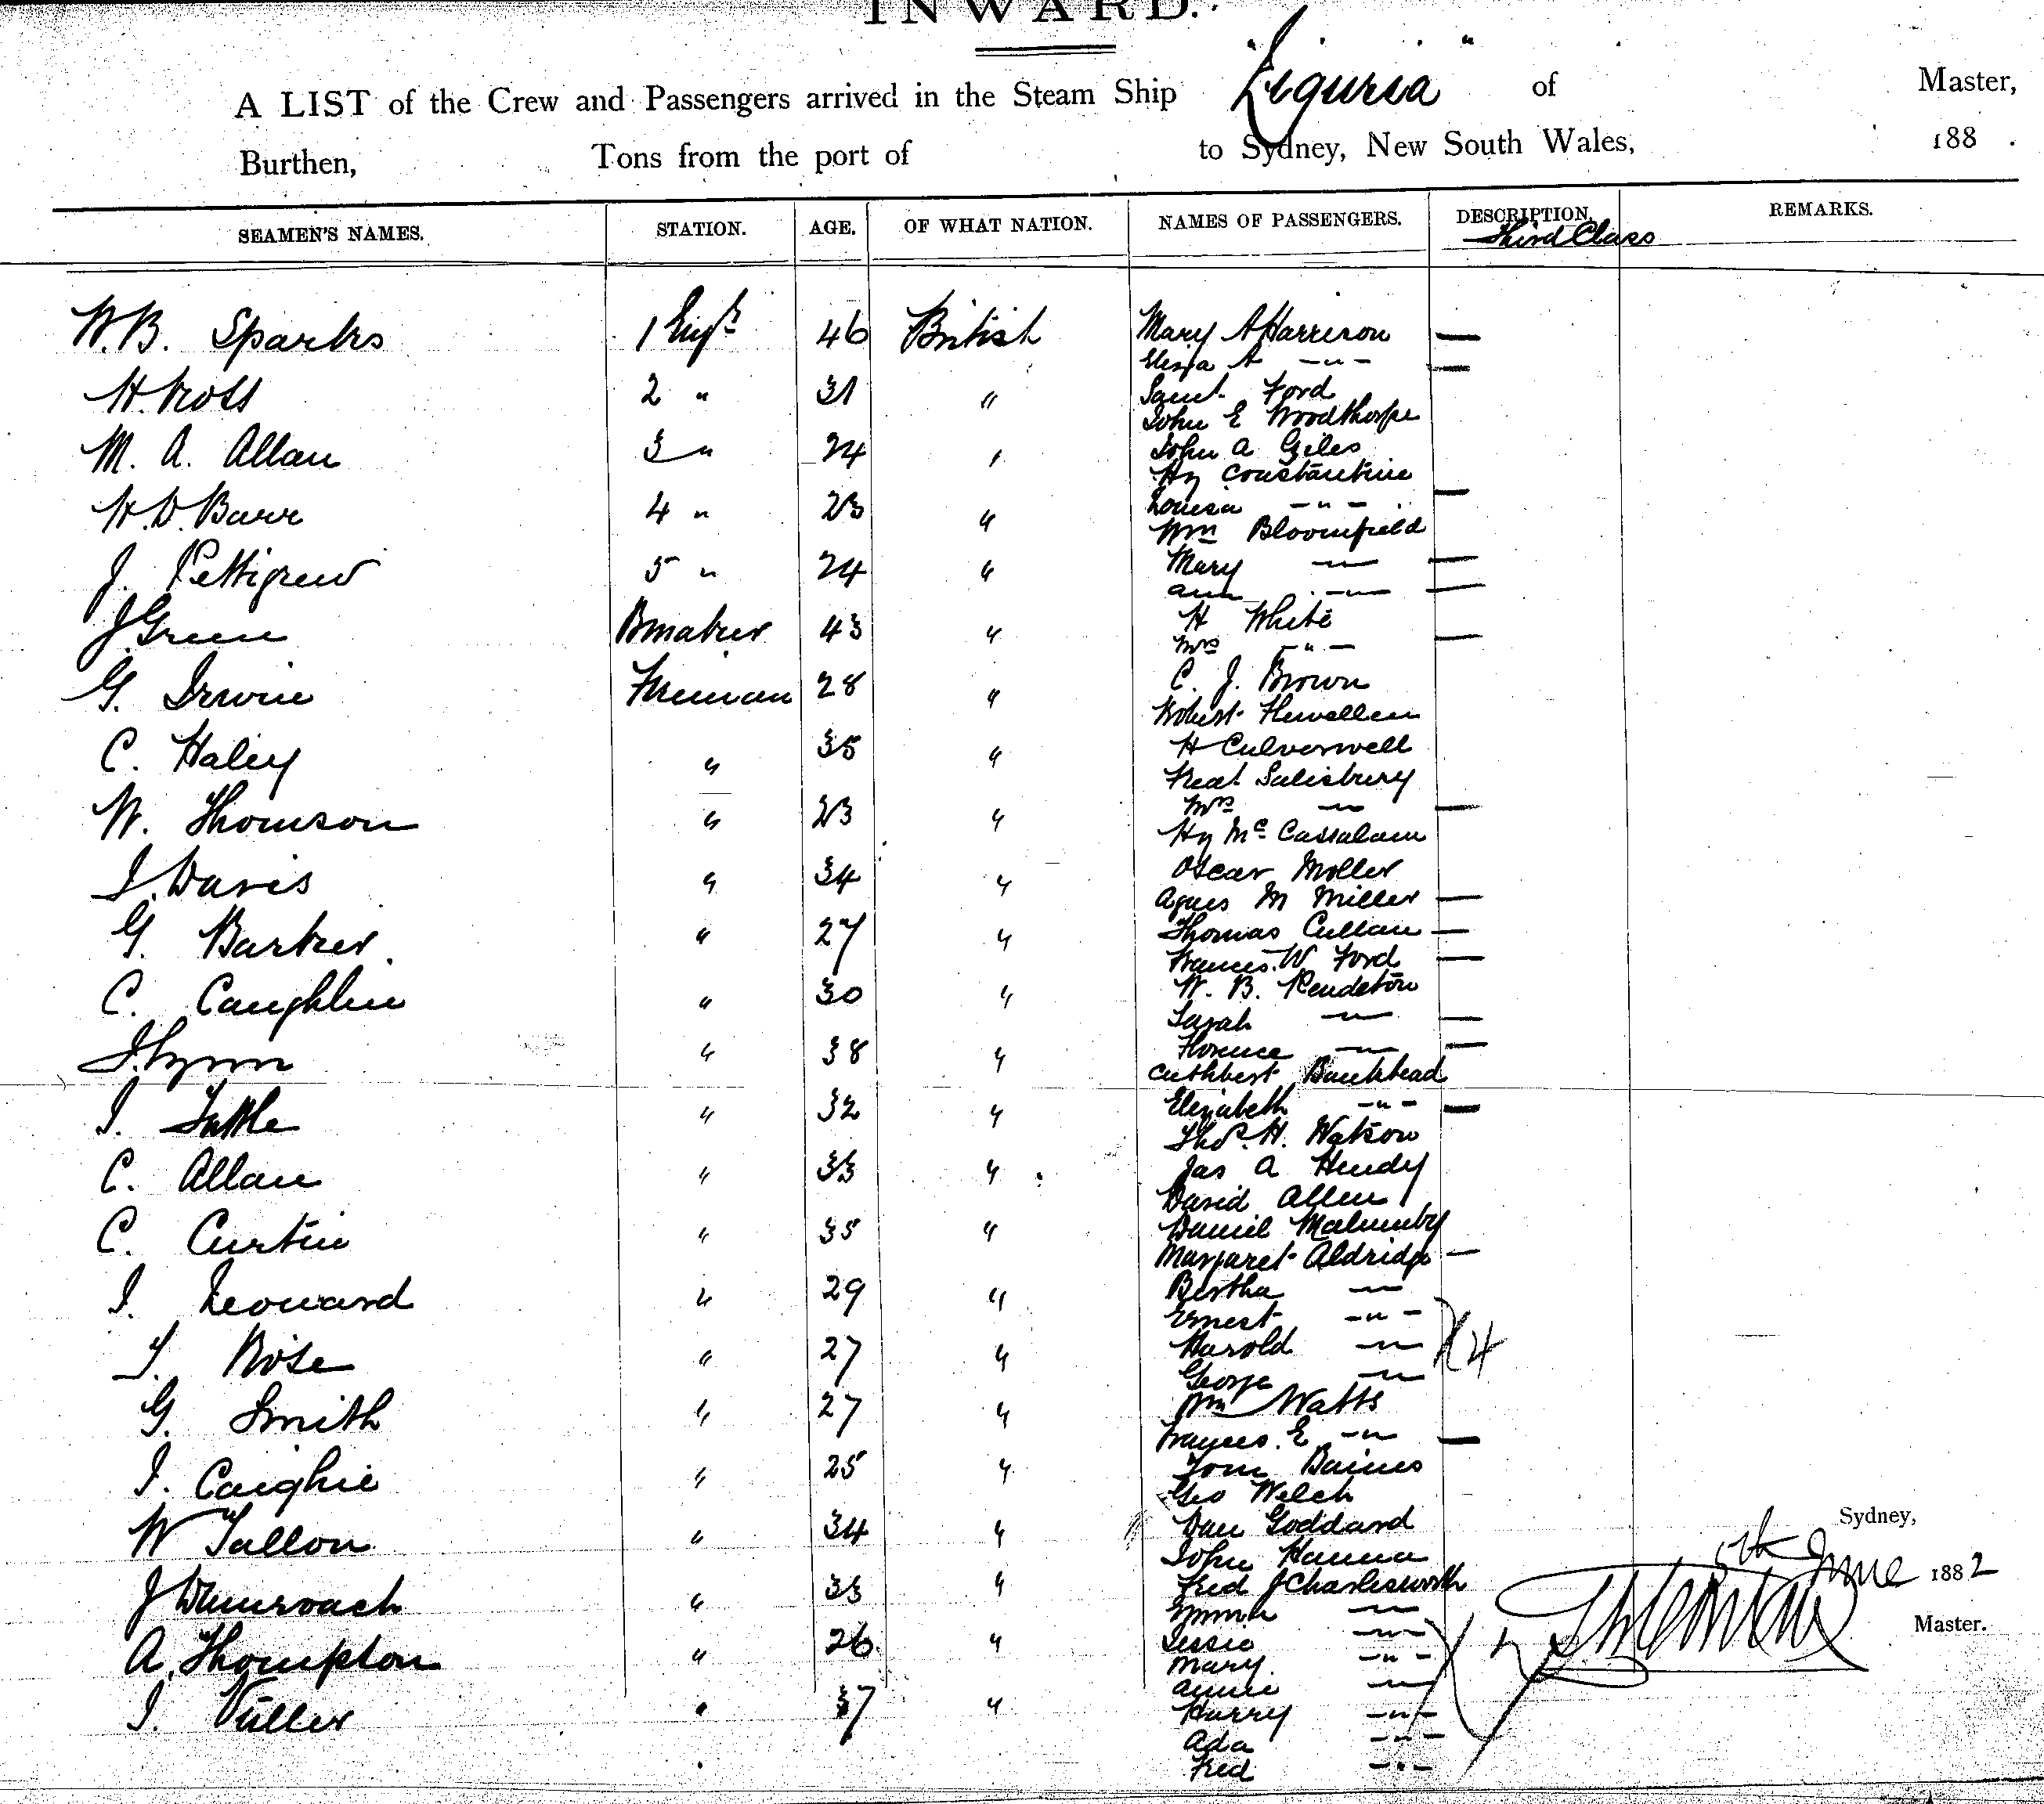 INWARD.
A LIST of the Crew and Passengers arrived in the Steam Ship "Liguria" of Master,
Burthen, Tons from the port of to Sydney, New South Wales, 188 .
SEAMEN'S NAMES. STATION. AGE. OF WHAT NATION. NAMES OF PASSENGERS. DESCRIPTION. REMARKS.
Third Class
W.B. Sparks 1 Engr 46 British Mary A Harrison —
Eliza A -"- —
H. Ross 2 " 31 " Saml Ford
John E Woodthorpe
M. A. Allan 3 " 24 " John A Giles
Hy Constantine
H.D. Barr 4 " 23 " Louisa -"- —
Wm Bloomfield
J. Pettigrew 5 " 24 " Mary -"- —
Ann -"- —
J Green Bmaker 43 " H White
Mrs -"- —
G. Irwin Fireman 28 " C. J. Brown
Robert Flewellen
C. Haley " 35 " H Culverwell
Fredk Salisbury
W. Thomson " 23 " Mrs -"- —
Hy Mc Cassalam
I. Davis " 34 " Oscar Moller
Agnes M Miller —
G. Barker " 27 " Thomas Cullan —
Frances. W Ford —
C. Caughlin " 30 " W. B. Pendleton
Sarah -"- —
J. Lynn " 38 " Florence -"- —
Cuthbert Bankhead
I. Tuttle " 32 " Elizabeth -"- —
Thos. H. Watson
C. Allan " 33 " Jas A Hendy
David Allen
C. Curtin " 35 " Daniel
Margaret Aldridge —
I. Leonard " 29 " Bertha -"-
Ernest -"-
T. Rose " 27 " Harold -"- 4
George -"-
G. Smith " 27 " Wm Watts
Frances. E -"- —
I. Caighie " 25 " Tom Baines
Geo Welch
W Tallon " 34 " Dan Goddard
John Hanna
J Dunroach " 33 " Fred J Charlesworth
Emma -"-
A. Thompson " 26 " Jessie -"-
Mary. -"-
Annie -"-
I. Fuller " 37 " Harry -"-
Ada -"-
Fred -"-
Sydney,
5th June 1882
Master.